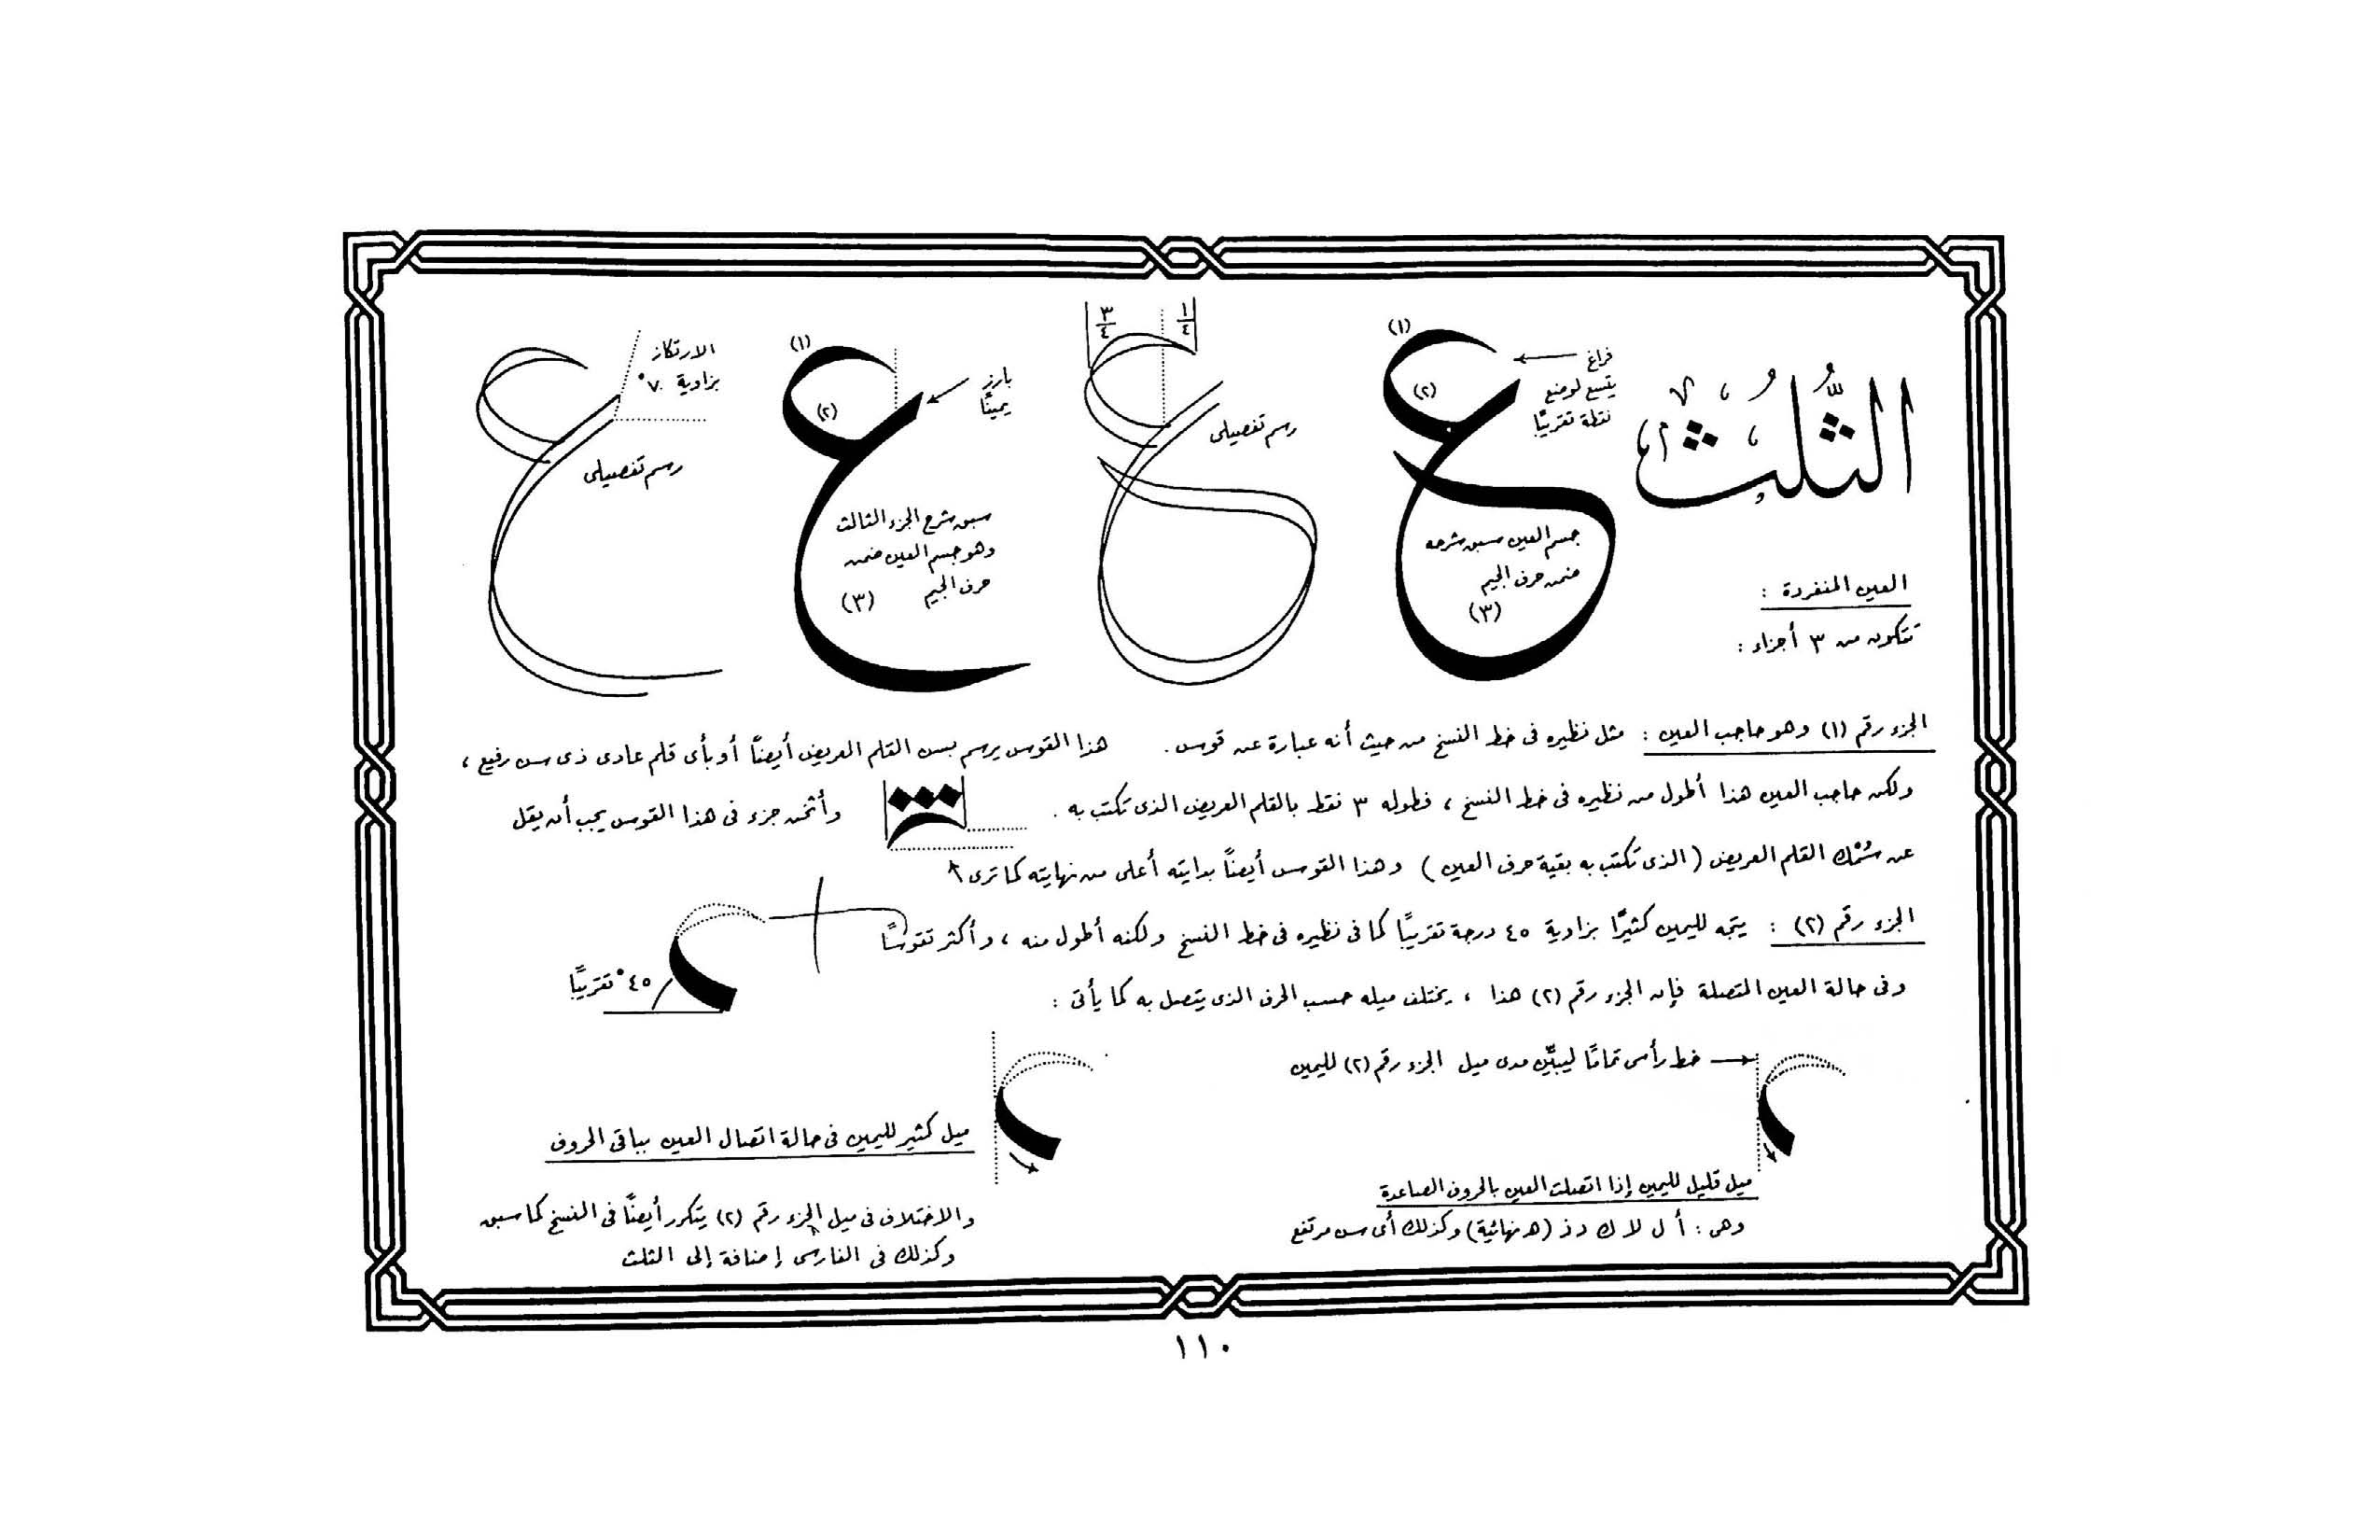 الثُّلُث
العين المنفردة :
تتكون من ٣ أجزاء :
(١)
(٢)
فراغ
يتسع لوضع
نقطة تقريبًا
جسم العين سبق شرحه
ضمن حرف الجيم
(٣)
١/٤
٣/٤
رسم تفصيلى
(١)
(٢)
بارز
يمينًا
سبق شرح الجزء الثالث
وهو جسم العين ضمن
حرف الجيم
(٣)
الارتكاز
بزاوية ٧٠°
رسم تفصيلى
الجزء رقم (١) وهو حاجب العين : مثل نظيره فى خط النسخ من حيث أنه عبارة عن قوس . هذا القوس يرسم بسن القلم العريض أيضًا أو بأى قلم عادى ذى سن رفيع ،
ولكن حاجب العين هذا أطول من نظيره فى خط النسخ ، فطوله ٣ نقط بالقلم العريض الذى تكتب به . وأثخن جزء فى هذا القوس يجب أن يقل
عن سُمْك القلم العريض (الذى تكتب به بقية حرف العين) وهذا القوس أيضًا بدايته أعلى من نهايته كما ترى
الجزء رقم (٢) : يتجه لليمين كثيرًا بزاوية ٤٥ درجة تقريبًا كما فى نظيره فى خط النسخ ولكنه أطول منه ، وأكثر تقوسًا
٤٥° تقريبًا
وفى حالة العين المتصلة فإن الجزء رقم (٢) هذا ، يختلف ميله حسب الحرف الذى يتصل به كما يأتى :
خط رأسى تمامًا ليبيّن مدى ميل الجزء رقم (٢) لليمين
ميل قليل لليمين إذا اتصلت العين بالحروف الصاعدة
وهى : أ ل لا ك د ذ (ه نهائية) وكذلك أى سن مرتفع
ميل كثير لليمين فى حالة اتصال العين بباقى الحروف
والاختلاف فى ميل الجزء رقم (٢) يتكرر أيضًا فى النسخ كما سبق
وكذلك فى الفارسى إضافة إلى الثلث
١١٠